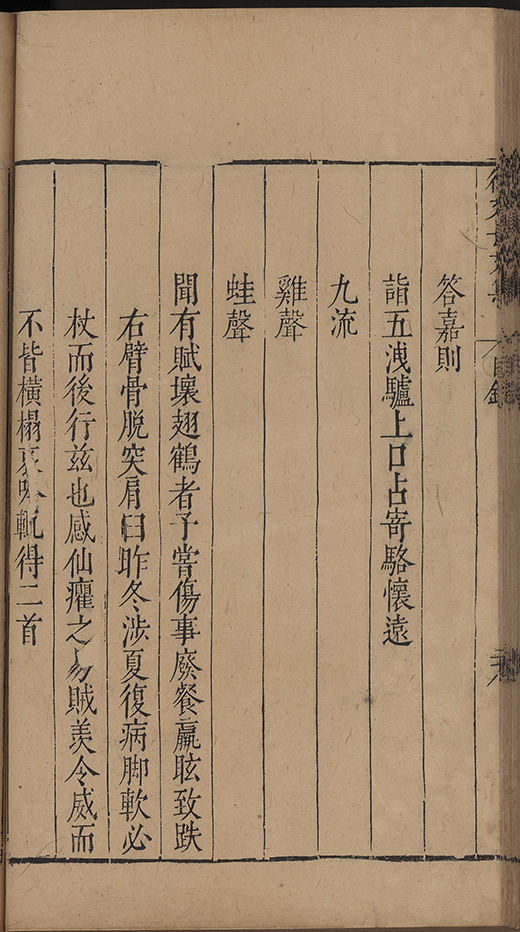 目錄
答嘉則
詣五洩驢上口占寄駱懷遠
九流
雞聲
蛙聲
聞有賦壞翅鶴者予嘗傷事廢餐羸眩致跌
右臂骨脫突肩臼昨冬涉夏復病脚軟必
杖而後行茲也感仙癯之易賊羨令威而
不皆橫榻哀吟輒得二首